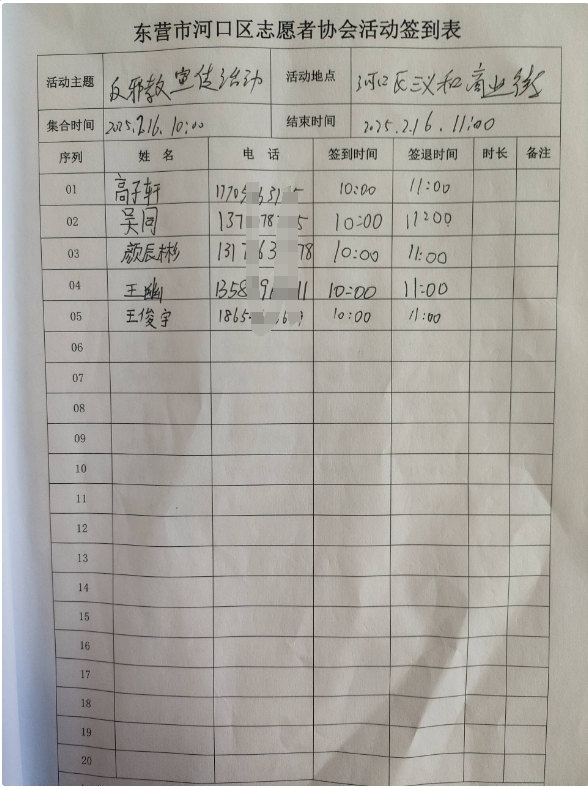 东营市河口区志愿者协会活动签到表
活动主题 反邪教宣传活动 活动地点 河口区三义和商业街
集合时间 2025.2.16. 10:00 结束时间 2025.2.16. 11:00
序列 姓名 电话 签到时间 签退时间 时长 备注
01 高子轩 10:00 11:00
02 吴同 10:00 11:00
03 颜辰彬 10:00 11:00
04 王 10:00 11:00
05 王俊宇 10:00 11:00
06
07
08
09
10
11
12
13
14
15
16
17
18
19
20